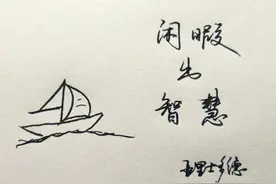 闲暇
出
智慧
亚里士多德